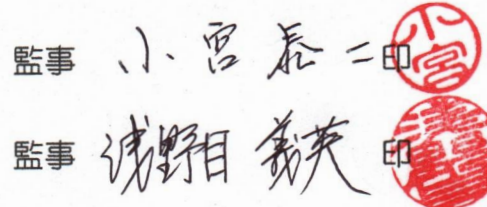 監事 小宮 泰二 印 小宮
監事 浅野目 義英 印